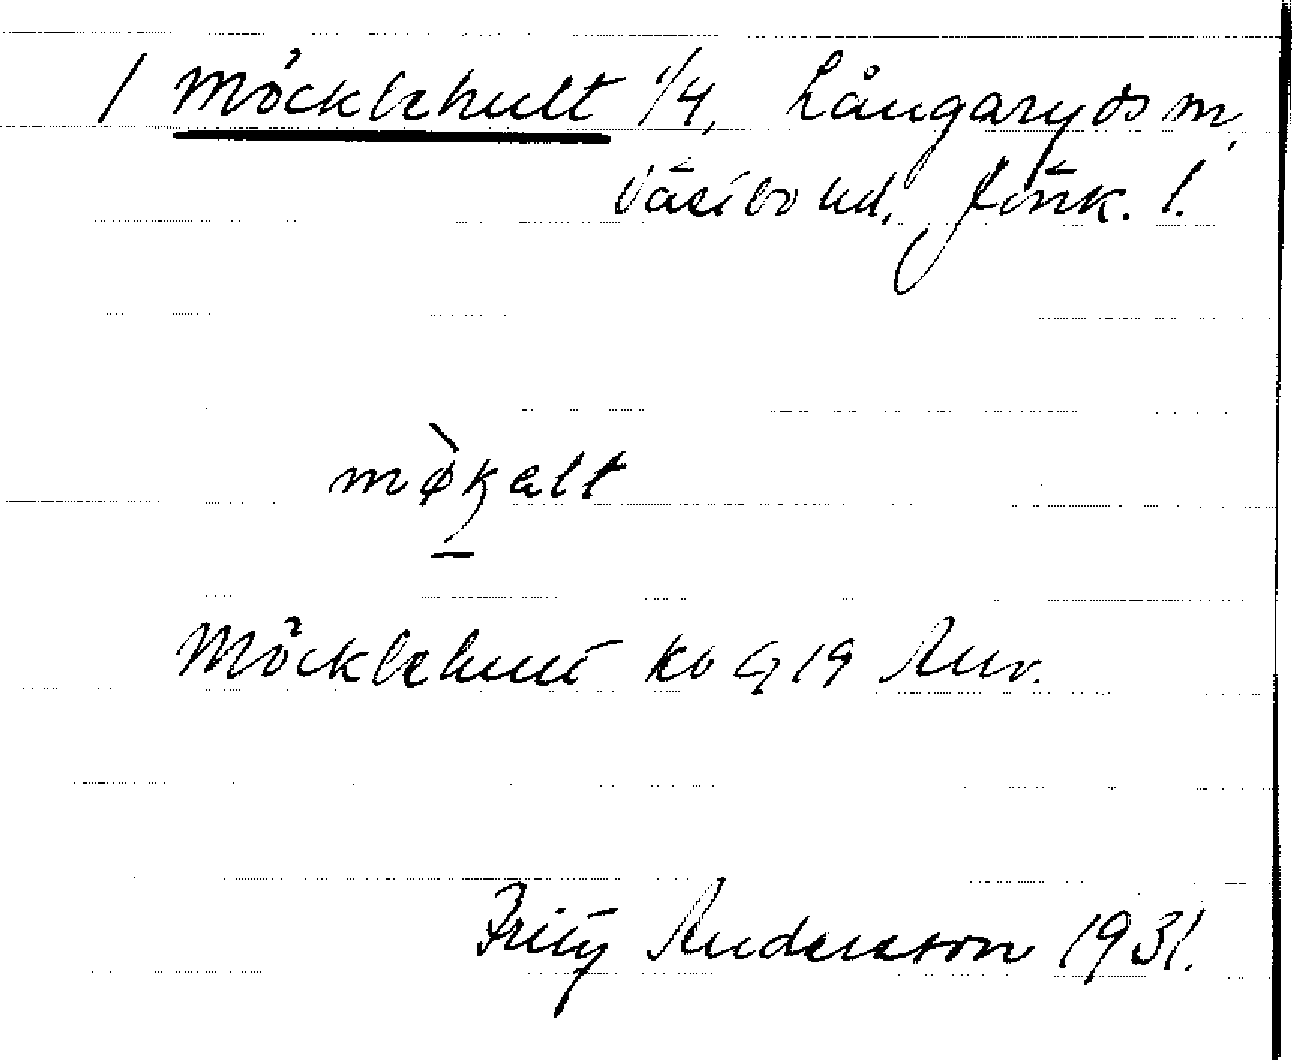 / Möcklehult 1/4, Långaryds sn,
Västbo hd, Jönk. l.
mø̀kalt
Möcklehult kb G 19 Anv.
Fritz Andersson 1931.